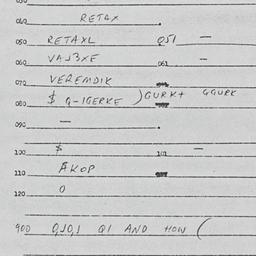 040 RETAX
050 RETAXL Q51 —
060 VAJ3XE 061 —
070 VEREMDIK
080 $ G-IGERKE ) GURK+ GGURK
090 —
100 $ 101 —
110 AKOP
120 0
900 0,10,1 Q1 AND HOW (